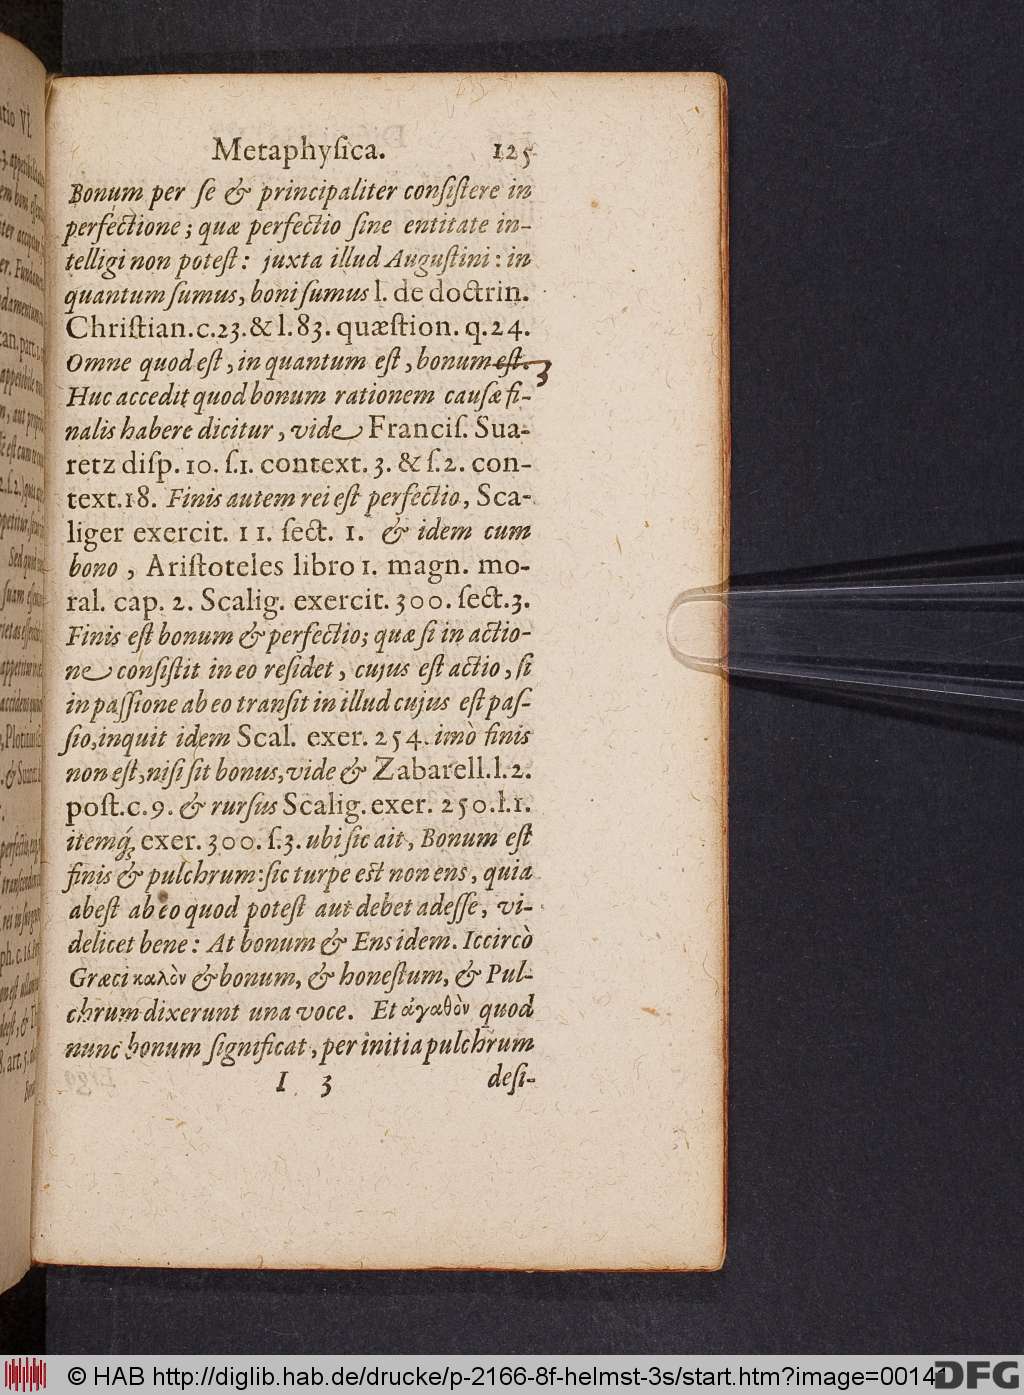 Metaphyſica. 125
Bonum per ſe & principaliter conſiſtere in
perfectione; quæ perfectio ſine entitate in-
telligi non poteſt: juxta illud Auguſtini: in
quantum ſumus, boni ſumus l. de doctrin.
Chriſtian. c. 23. & l. 83. quæſtion. q. 24.
Omne quod eſt, in quantum eſt, bonum eſt.
Huc accedit quod bonum rationem cauſæ fi-
nalis habere dicitur, vide Franciſ. Sua-
retz diſp. 10. ſ.1. context. 3. & ſ.2. con-
text. 18. Finis autem rei eſt perfectio, Sca-
liger exercit. 11. ſect. 1. & idem cum
bono, Ariſtoteles libro 1. magn. mo-
ral. cap. 2. Scalig. exercit. 300. ſect. 3.
Finis eſt bonum & perfectio; quæ ſi in actio-
ne conſiſtit in eo reſidet, cujus eſt actio, ſi
in paſſione ab eo tranſit in illud cujus eſt paſ-
ſio, inquit idem Scal. exer. 254. imò finis
non eſt, niſi ſit bonus, vide & Zabarell. l. 2.
poſt. c. 9. & rurſus Scalig. exer. 250. ſ.1.
itemq́; exer. 300. ſ.3. ubi ſic ait, Bonum eſt
finis & pulchrum: ſic turpe est non ens, quia
abeſt ab eo quod poteſt aut debet adeſſe, vi-
delicet bene: At bonum & Ens idem. Iccircò
Græci καλὸν & bonum, & honeſtum, & Pul-
chrum dixerunt una voce. Et ἀγαθὸν quod
nunc bonum ſignificat, per initia pulchrum
I 3 deſi-
© HAB http://diglib.hab.de/drucke/p-2166-8f-helmst-3s/start.htm?image=00141
DFG